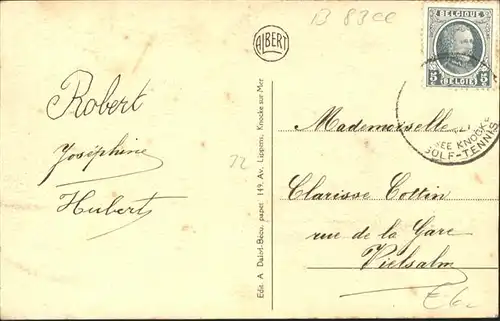 B 83cc
ALBERT
BELGIQUE
5 BELGIË 5
Robert
Joséphine
Hubert
72
Edit. A Dalst-Bécu, papet 149, Av. Lippens, Knocke sur Mer
KNOCKE
GOLF-TENNIS
Mademoiselle
Clarisse Cottin
rue de la Gare
Vielsalm